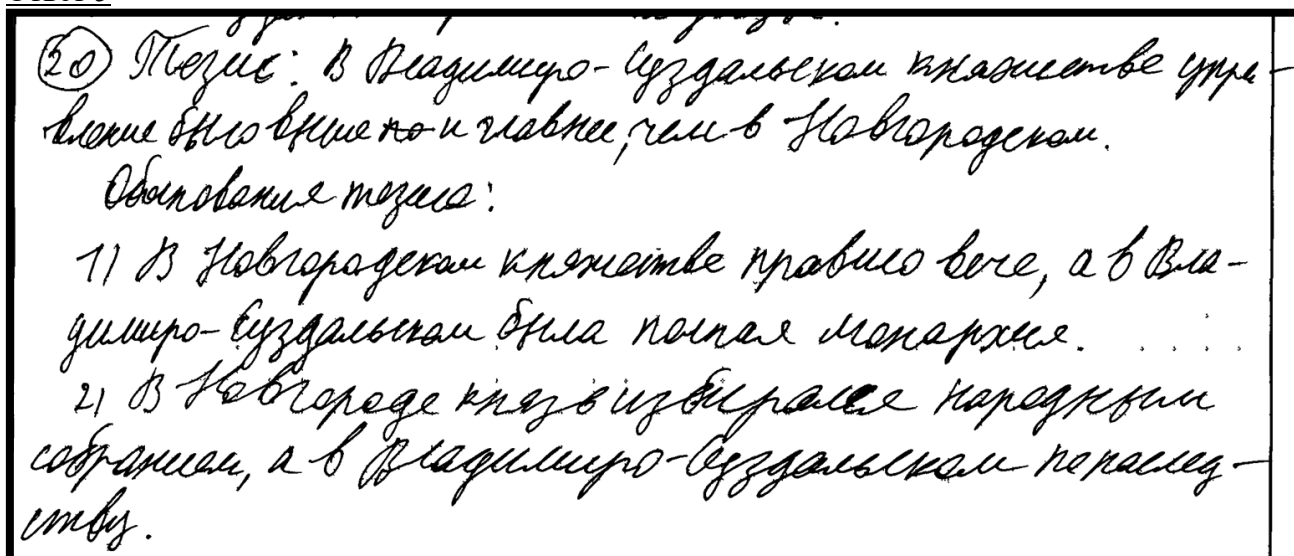 20 Тезис: В Владимиро-Суздальском княжестве упра-
вление было выше и главнее, чем в Новгородском.
Обоснования тезиса:
1) В Новгородском княжестве правило вече, а в Вла-
димиро-Суздальском была полная монархия.
2) В Новгороде князь избирался народным
собранием, а в Владимиро-Суздальском по наслед-
ству.